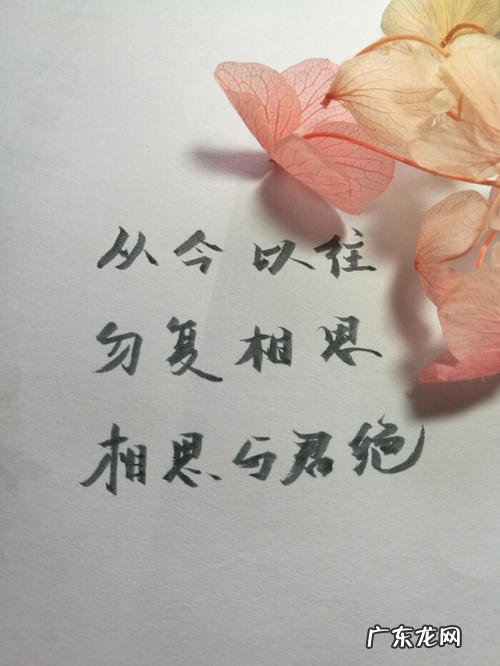 从今以往
勿复相思
相思与君绝
广东龙网